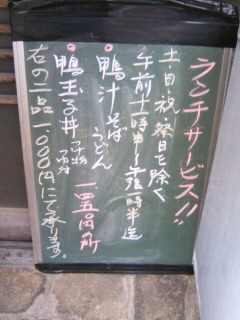 ランチサービス!!
土・日・祝・祭日を除く
午前十一時半〜午後一時半迄
鴨汁そば
うどん
鴨玉子丼
つけ物
つゆ付
一四五〇円の所
右の二品一、〇〇〇円にて承ります。